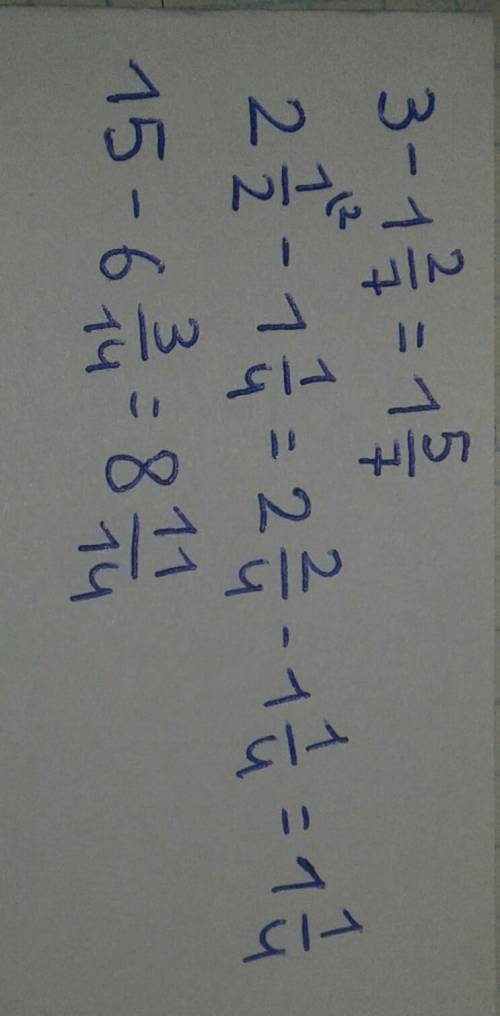 3 - 1 2/7 = 1 5/7
2 1/2 (2 - 1 1/4 = 2 2/4 - 1 1/4 = 1 1/4
15 - 6 3/14 = 8 11/14